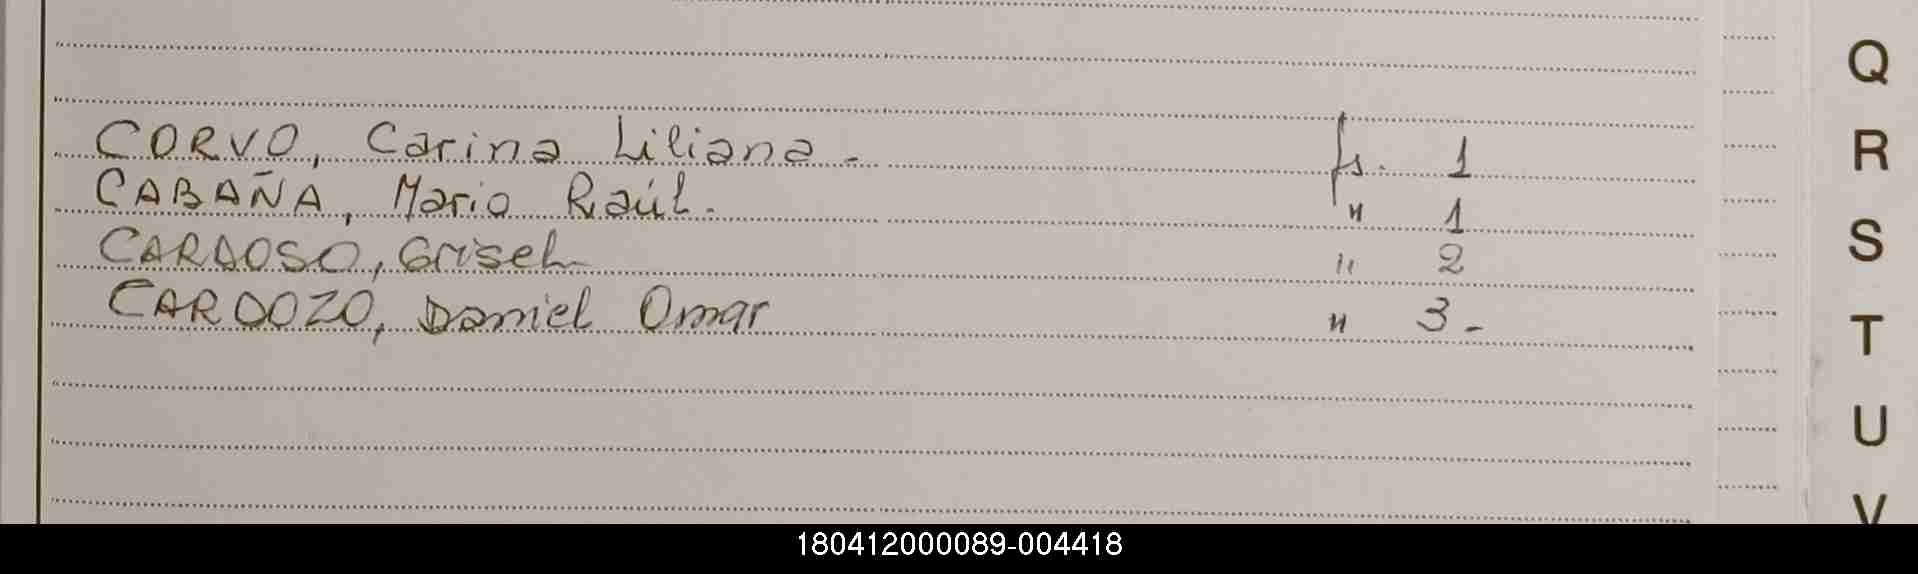 CORVO, Carina Liliana - fs. 1
CABAÑA, Mario Raúl. " 1
CARDOSO, Grisel " 2
CARDOZO, Daniel Omar " 3-
Q
R
S
T
U
V
180412000089-004418